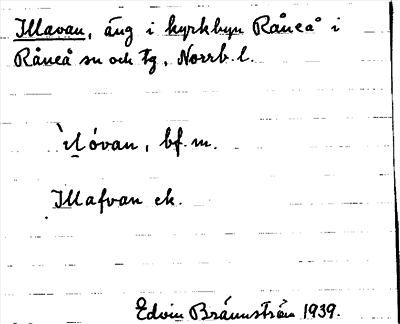 Illavan, äng i kyrkbyn Råneå i
Råneå sn och tg, Norrb. l.
bf. m.
Illafvan ek.
Edvin Brännström 1939.